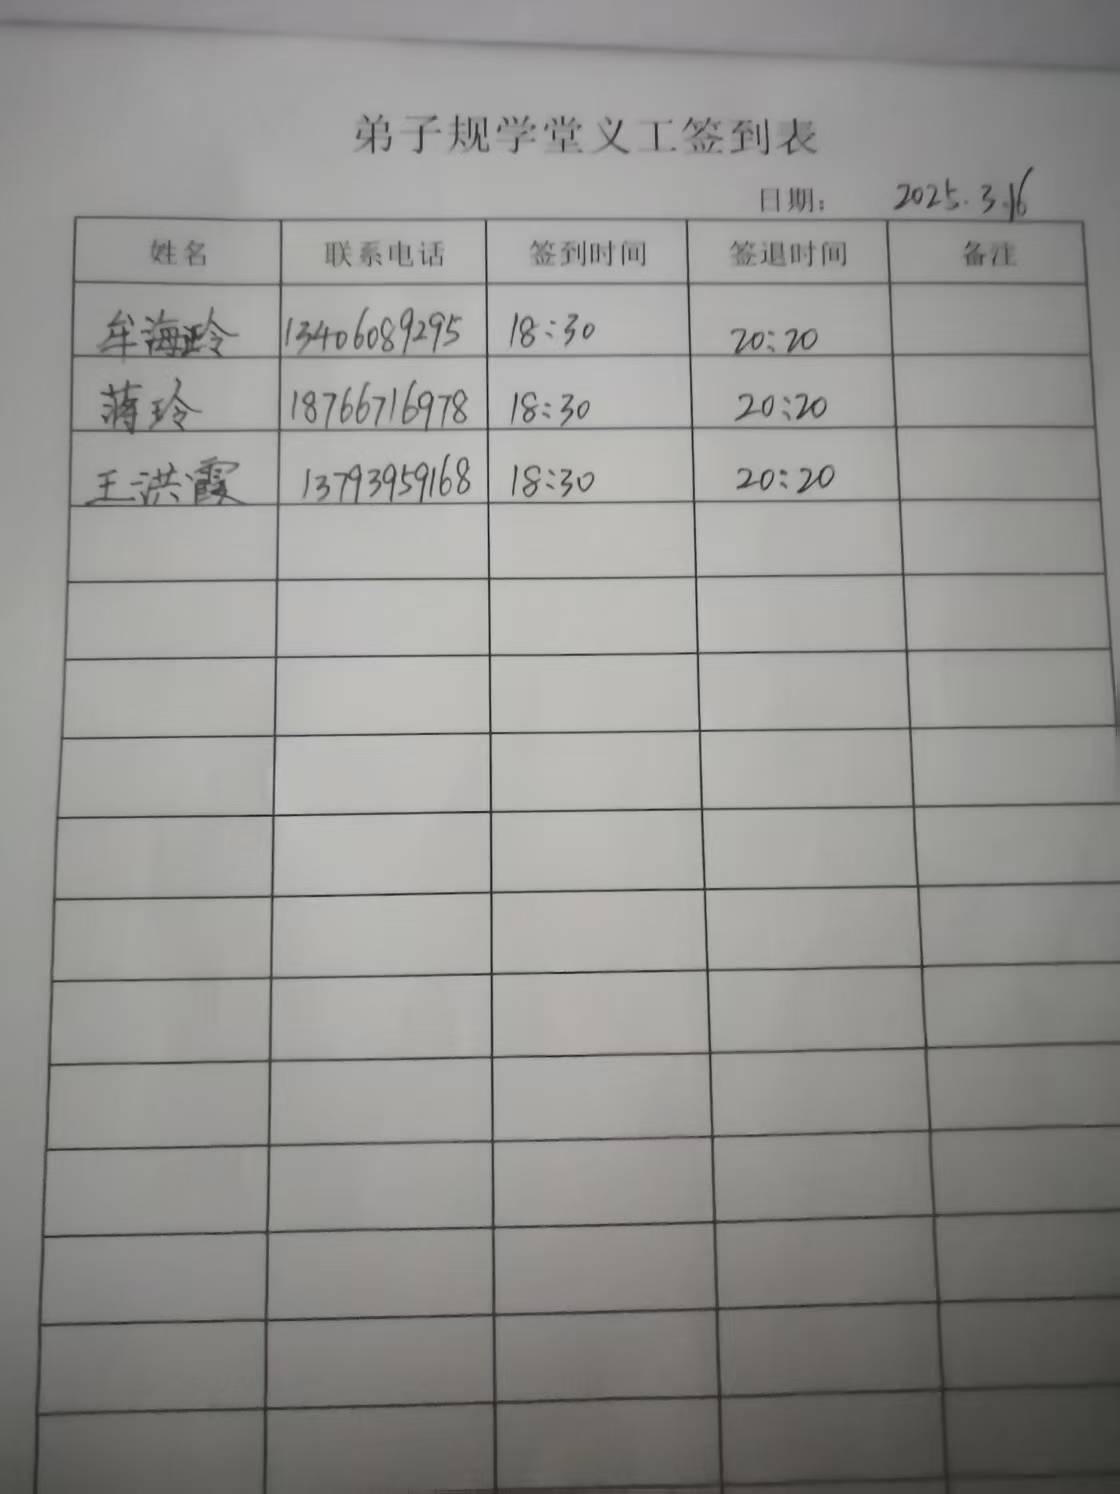 弟子规学堂义工签到表
日期： 2025.3.16
姓名 联系电话 签到时间 签退时间 备注
牟海玲 13406089295 18:30 20:20
蒋玲 18766716978 18:30 20:20
王洪霞 13793959168 18:30 20:20